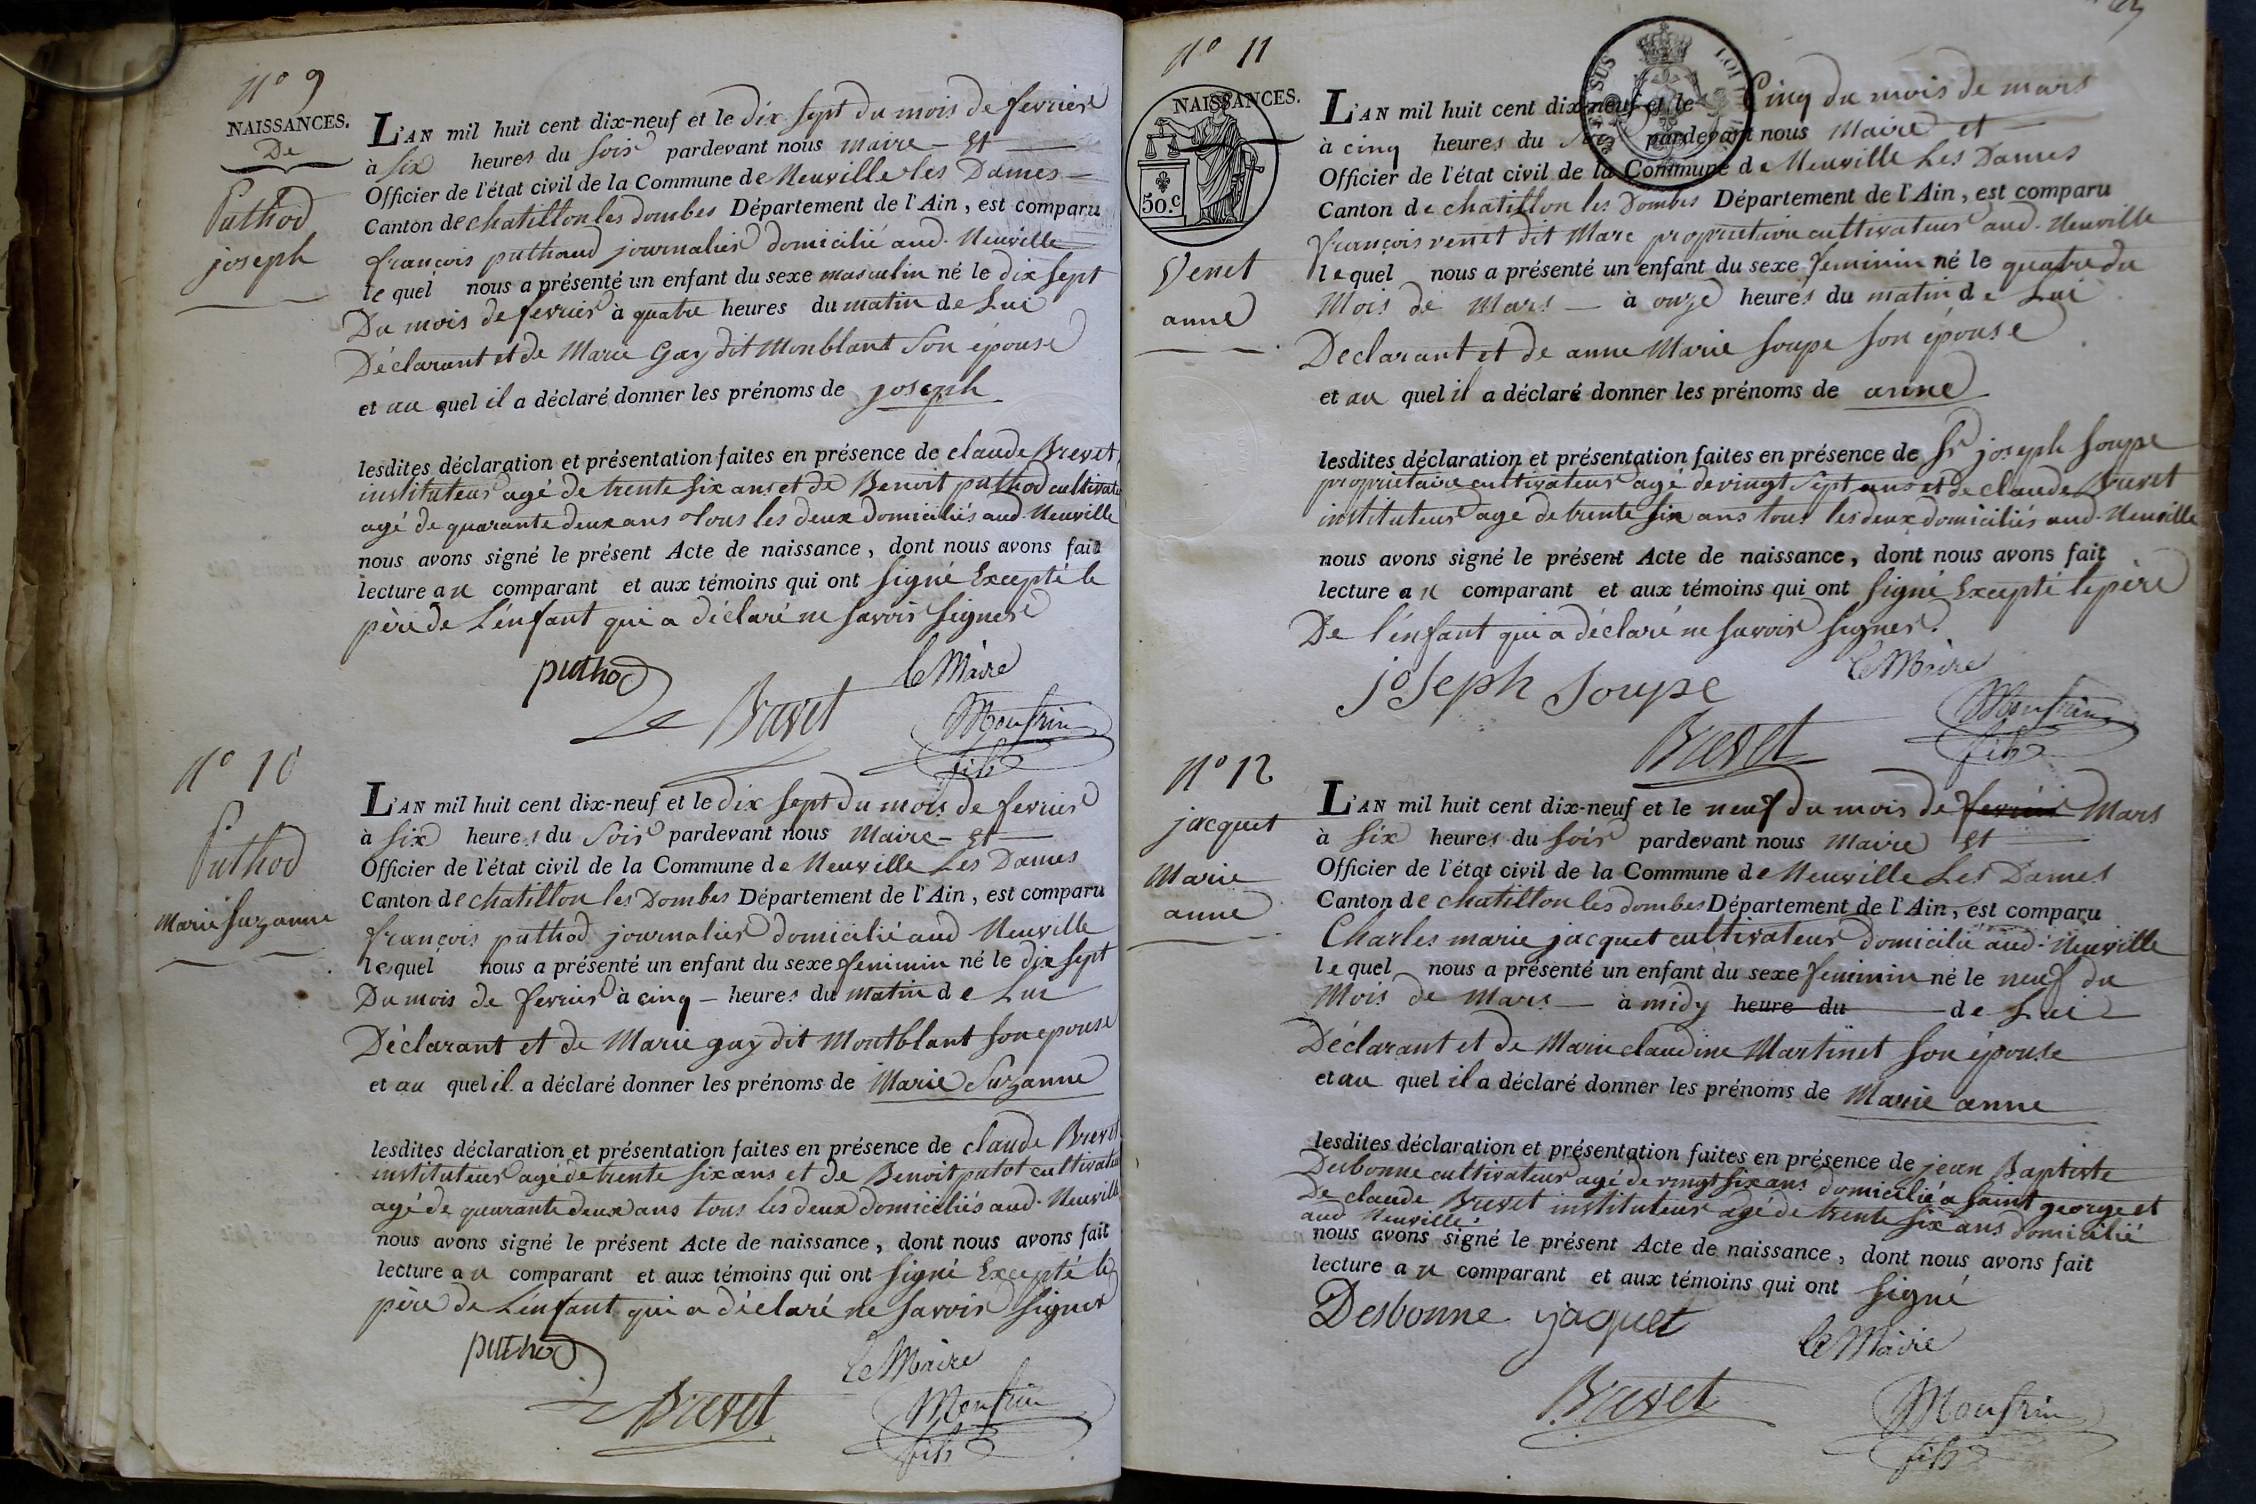 N° 9
NAISSANCES.
De
Puthod
joseph
L'AN mil huit cent dix-neuf et le dix sept du mois de fevrier
à six heures du soir pardevant nous maire et
Officier de l'état civil de la Commune de Neuville les Dames
Canton de chatillon les dombes Département de l'Ain, est comparu
françois puthaud journalier domicilié aud. Neuville
le quel nous a présenté un enfant du sexe masculin né le dix sept
Du mois de fevrier à quatre heures du matin de Lui
Déclarant et de Marie Gay dit Monblant Son épouse
et au quel il a déclaré donner les prénoms de joseph
lesdites déclaration et présentation faites en présence de claude Brevet
instituteur agé de trente six ans et de Benoit puthod cultivateur
agé de quarante deux ans tous les deux domiciliés aud. Neuville
nous avons signé le présent Acte de naissance, dont nous avons fait
lecture au comparant et aux témoins qui ont signé Excepté le
père de L'enfant qui a déclaré ne savoir signer
puthod
le Maire
Brevet
Monfrin
fils
N° 10
Puthod
Marie suzanne
L'AN mil huit cent dix-neuf et le dix sept du mois de fevrier
à six heures du soir pardevant nous Maire et
Officier de l'état civil de la Commune de Neuville Les Dames
Canton de chatillon les Dombes Département de l'Ain, est comparu
françois puthod journalier domicilié aud Neuville
lesquel nous a présenté un enfant du sexe feminin né le dix sept
Du mois de fevrier à cinq heures du matin de Lui
Déclarant et de Marie gay dit Montblant son epouse
et au quel il a déclaré donner les prénoms de Marie Suzanne
lesdites déclaration et présentation faites en présence de claude Brevet
instituteur agé de trente six ans et de Benoit putot cultivateur
agé de quarante deux ans tous les deux domiciliés aud. Neuville
nous avons signé le présent Acte de naissance, dont nous avons fait
lecture au comparant et aux témoins qui ont signé Excepté le
père de L'enfant qui a déclaré ne savoir signer
puthod
Le Maire
Brevet
Monfrin
fils
N° 11
NAISSANCES.
50.c
Venet
anne
L'AN mil huit cent dix-neuf et le Cinq du mois de mars
à cinq heures du soir pardevant nous Maire et
Officier de l'état civil de la Commune de Neuville Les Dames
Canton de chatillon les Dombes Département de l'Ain, est comparu
françois venet dit Marc proprietaire cultivateur aud. Neuville
le quel nous a présenté un enfant du sexe feminin né le quatre du
Mois de Mars à onze heures du matin de Lui
Declarant et de anne Marie soupe son épouse
et au quel il a déclaré donner les prénoms de anne
lesdites déclaration et présentation faites en présence de Sr joseph soupe
proprietaire cultivateur agé de vingt sept ans et de claude Brevet
instituteur agé de trente six ans tous les deux domiciliés aud. Neuville
nous avons signé le présent Acte de naissance, dont nous avons fait
lecture au comparant et aux témoins qui ont signé Excepté le père
De l'enfant qui a déclaré ne savoir signer.
joseph soupe
Le Maire
Brevet
Monfrin
fils
N° 12
jacquet
Marie
anne
L'AN mil huit cent dix-neuf et le neuf du mois de fevrier Mars
à six heures du soir pardevant nous Maire et
Officier de l'état civil de la Commune de Neuville Les Dames
Canton de chatillon les dombes Département de l'Ain, est comparu
Charles marie jacquet cultivateur domicilié aud. Neuville
le quel nous a présenté un enfant du sexe feminin né le neuf du
Mois de Mars à midy heure du de Lui
Déclarant et de Marie claudine Martinet son épouse
et au quel il a déclaré donner les prénoms de Marie anne
lesdites déclaration et présentation faites en présence de jean Baptiste
Desbonne cultivateur agé de vingt six ans domicilié a saint george et
De claude Brevet instituteur agé de trente six ans domicilié
aud Neuville.
nous avons signé le présent Acte de naissance, dont nous avons fait
lecture au comparant et aux témoins qui ont signé
Desbonne jaquet
Le Maire
Brevet
Monfrin
fils